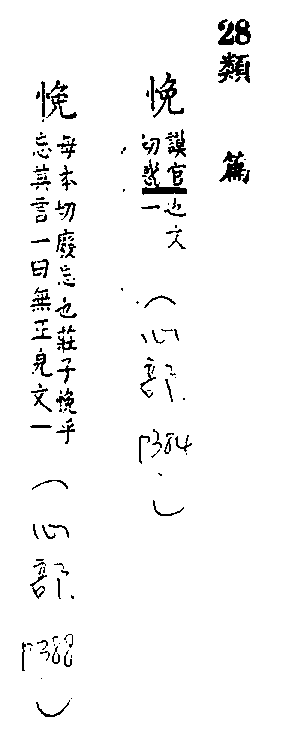 28 類篇
悗 謨官切惑也文一 (心部 P384)
悗 母本切廢忘也莊子悗乎忘其言一曰無正皃文一 (心部 P388)